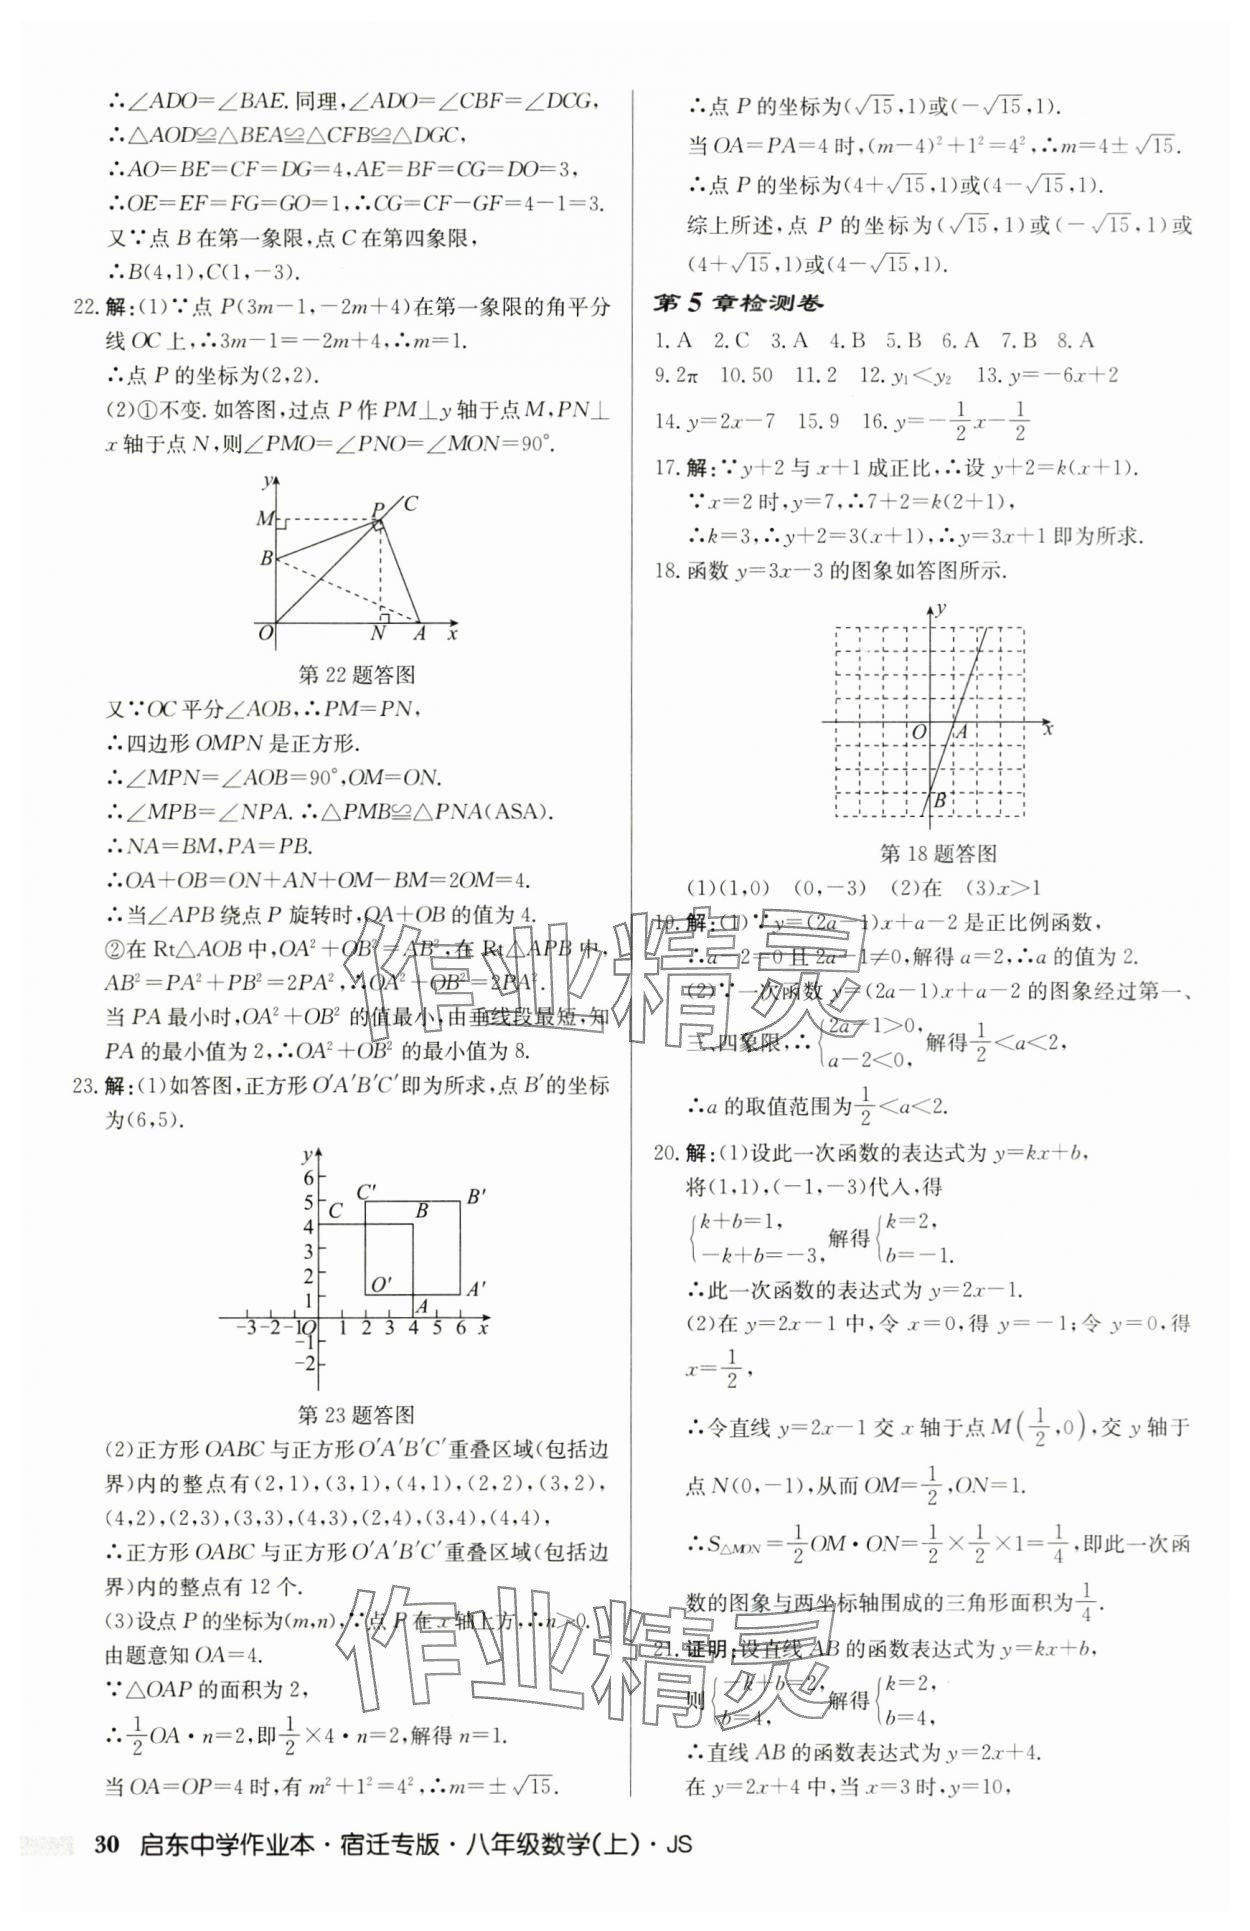 ∴∠ADO=∠BAE.同理,∠ADO=∠CBF=∠DCG,
∴△AOD≌△BEA≌△CFB≌△DGC,
∴AO=BE=CF=DG=4,AE=BF=CG=DO=3,
∴OE=EF=FG=GO=1,∴CG=CF-GF=4-1=3.
又∵点 B 在第一象限,点 C 在第四象限,
∴B(4,1),C(1,-3).
22.解:(1)∵点 P(3m-1,-2m+4)在第一象限的角平分
线 OC 上,∴3m-1=-2m+4,∴m=1.
∴点 P 的坐标为(2,2).
(2)①不变.如答图,过点 P 作 PM⊥y 轴于点 M,PN⊥
x 轴于点 N,则∠PMO=∠PNO=∠MON=90°.
y
M
P
C
B
O
N
A
x
第 22 题答图
又∵OC 平分∠AOB,∴PM=PN,
∴四边形 OMPN 是正方形.
∴∠MPN=∠AOB=90°,OM=ON.
∴∠MPB=∠NPA.∴△PMB≌△PNA(ASA).
∴NA=BM,PA=PB.
∴OA+OB=ON+AN+OM-BM=2OM=4.
∴当∠APB 绕点 P 旋转时,OA+OB 的值为 4.
②在 Rt△AOB 中,OA²+OB²=AB²,在 Rt△APB 中,
AB²=PA²+PB²=2PA²,∴OA²+OB²=2PA².
当 PA 最小时,OA²+OB² 的值最小,由垂线段最短,知
PA 的最小值为 2,∴OA²+OB² 的最小值为 8.
23.解:(1)如答图,正方形 O′A′B′C′即为所求,点 B′的坐标
为(6,5).
y
6
5
4
3
2
1
C′
B′
C
B
O′
A′
A
-3 -2 -1 O 1 2 3 4 5 6 x
-1
-2
第 23 题答图
(2)正方形 OABC 与正方形 O′A′B′C′重叠区域(包括边
界)内的整点有(2,1),(3,1),(4,1),(2,2),(3,2),
(4,2),(2,3),(3,3),(4,3),(2,4),(3,4),(4,4),
∴正方形 OABC 与正方形 O′A′B′C′重叠区域(包括边
界)内的整点有 12 个.
(3)设点 P 的坐标为(m,n),∵点 P 在 x 轴上方,∴n>0.
由题意知 OA=4.
∵△OAP 的面积为 2,
∴1/2 OA·n=2,即 1/2×4·n=2,解得 n=1.
当 OA=OP=4 时,有 m²+1²=4²,∴m=±√15.
∴点 P 的坐标为(√15,1)或(-√15,1).
当 OA=PA=4 时,(m-4)²+1²=4²,∴m=4±√15.
∴点 P 的坐标为(4+√15,1)或(4-√15,1).
综上所述,点 P 的坐标为(√15,1)或(-√15,1)或
(4+√15,1)或(4-√15,1).
第 5 章检测卷
1.A 2.C 3.A 4.B 5.B 6.A 7.B 8.A
9.2π 10.50 11.2 12.y₁<y₂ 13.y=-6x+2
14.y=2x-7 15.9 16.y=-1/2x-1/2
17.解:∵y+2 与 x+1 成正比,∴设 y+2=k(x+1).
∵x=2 时,y=7,∴7+2=k(2+1),
∴k=3,∴y+2=3(x+1),∴y=3x+1 即为所求.
18.函数 y=3x-3 的图象如答图所示.
y
O
A
x
B
第 18 题答图
(1)(1,0) (0,-3) (2)在 (3)x>1
19.解:(1)∵y=(2a-1)x+a-2 是正比例函数,
∴a-2=0 且 2a-1≠0,解得 a=2,∴a 的值为 2.
(2)∵一次函数 y=(2a-1)x+a-2 的图象经过第一、
三、四象限,∴{2a-1>0, a-2<0, 解得 1/2<a<2,
∴a 的取值范围为 1/2<a<2.
20.解:(1)设此一次函数的表达式为 y=kx+b,
将(1,1),(-1,-3)代入,得
{k+b=1, -k+b=-3, 解得{k=2, b=-1.
∴此一次函数的表达式为 y=2x-1.
(2)在 y=2x-1 中,令 x=0,得 y=-1;令 y=0,得
x=1/2,
∴令直线 y=2x-1 交 x 轴于点 M(1/2,0),交 y 轴于
点 N(0,-1),从而 OM=1/2,ON=1.
∴S△MON=1/2 OM·ON=1/2×1/2×1=1/4,即此一次函
数的图象与两坐标轴围成的三角形面积为 1/4.
21.证明:设直线 AB 的函数表达式为 y=kx+b,
则{-k+b=2, b=4, 解得{k=2, b=4,
∴直线 AB 的函数表达式为 y=2x+4.
在 y=2x+4 中,当 x=3 时,y=10,
作业精灵
作业精灵
30 启东中学作业本·宿迁专版·八年级数学(上)·JS